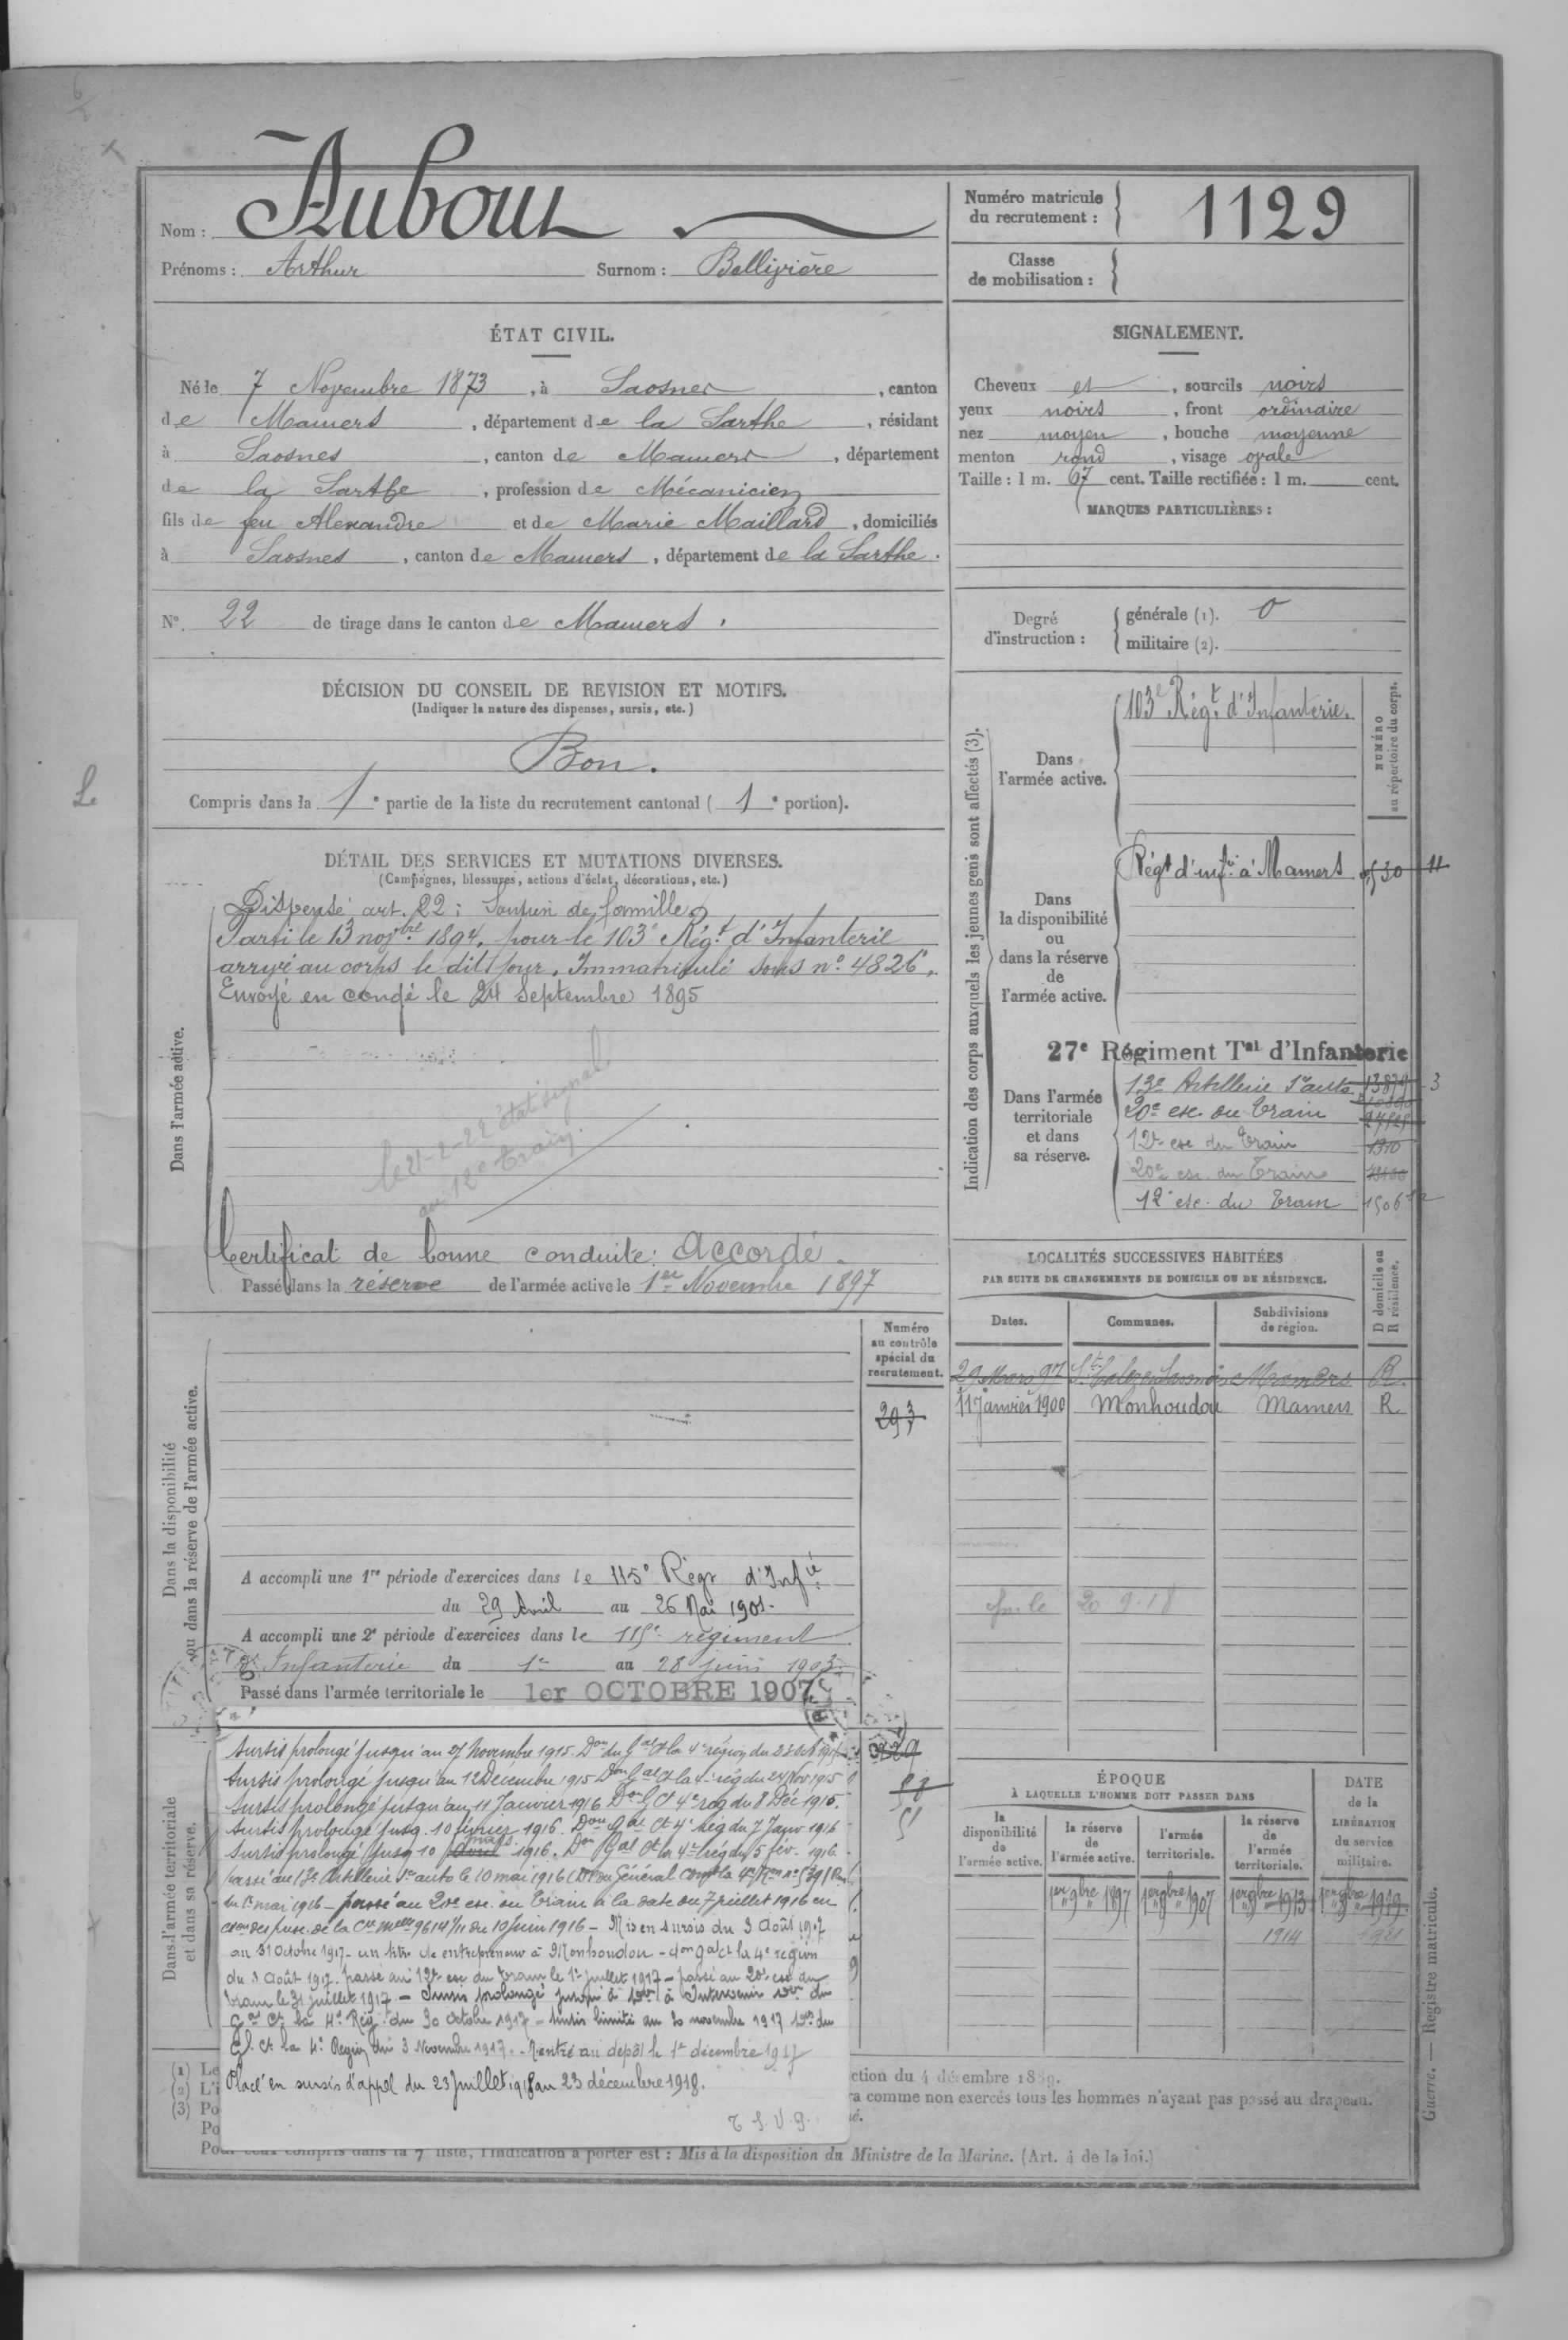 Nom : Aubour
Prénoms : Arthur Surnom :
Numéro matricule du recrutement : 1129
Classe de mobilisation :
ÉTAT CIVIL.
Né le 7 Novembre 1873, à Saosnes, canton
de Mamers, département de la Sarthe, résidant
à Saosnes, canton de Mamers, département
de la Sarthe, profession de Mécanicien
fils de feu Alexandre et de Marie Maillard, domiciliés
à Saosnes, canton de Mamers, département de la Sarthe.
N° 22 de tirage dans le canton de Mamers.
SIGNALEMENT.
Cheveux et, sourcils noirs
yeux noirs, front ordinaire
nez moyen, bouche moyenne
menton rond, visage ovale
Taille : 1 m. 67 cent. Taille rectifiée : 1 m. cent.
MARQUES PARTICULIÈRES :
Degré d'instruction : générale (1). 0
militaire (2).
DÉCISION DU CONSEIL DE REVISION ET MOTIFS.
(Indiquer la nature des dispenses, sursis, etc.)
Bon.
Compris dans la 1e partie de la liste du recrutement cantonal (1e portion).
DÉTAIL DES SERVICES ET MUTATIONS DIVERSES.
(Campagnes, blessures, actions d'éclat, décorations, etc.)
Dans l'armée active.
Dispensé art. 22 : Soutien de famille
Parti le 13 novbre 1894, pour le 103e Régt d'Infanterie
arrivé au corps le dit jour. Immatriculé sous n° 4826.
Envoyé en congé le 24 Septembre 1895
le 21-2-22 état signal
au 12e train.
Certificat de bonne conduite : Accordé.
Passé dans la réserve de l'armée active le 1er Novembre 1897
Indication des corps auxquels les jeunes gens sont affectés (3).
NUMÉRO au répertoire du corps.
Dans l'armée active.
103e Régt d'Infanterie.
Dans la disponibilité ou dans la réserve de l'armée active.
Régt d'infie à Mamers
27e Régiment Tal d'Infanterie
Dans l'armée territoriale et dans sa réserve.
13e Artillerie Son auto 3
20e esc. du Train
12e esc du Train 1310
20e esc. du Train
12e esc. du Train 1506
LOCALITÉS SUCCESSIVES HABITÉES
PAR SUITE DE CHANGEMENTS DE DOMICILE OU DE RÉSIDENCE.
Dates. Communes. Subdivisions de région. D domicile ou R résidence.
29 Mars 97 Mamers R.
11 Janvier 1900 Monhoudou Mamers R
20 9.18
Dans la disponibilité ou dans la réserve de l'armée active.
Numéro au contrôle spécial du recrutement.
293
A accompli une 1re période d'exercices dans le 115e Régt d'Infie
du 29 Avril au 26 Mai 1901.
A accompli une 2e période d'exercices dans le 115e régiment
d'Infanterie du 1er au 28 juin 1903.
Passé dans l'armée territoriale le 1er OCTOBRE 1907
Dans l'armée territoriale et dans sa réserve.
Sursis prolongé jusqu'au 27 Novembre 1915. Don du Gal Ct la 4e région du 23 oct 1915
Sursis prolongé jusqu'au 12 Décembre 1915 Don Gal Ct la 4e rég du 24 Nov 1915
Sursis prolongé jusqu'au 11 Janvier 1916 Don G Ct 4e rég du 8 Déc 1915.
Sursis prolongé jusq. 10 février 1916. Don Gal Ct 4e rég du 7 Janv 1916
Sursis prolongé jusq 10 mars 1916. Don Gal Ct la 4e rég du 5 fév. 1916
Passé au 13e Artillerie Son auto le 10 mai 1916 Don du Général Comt la 4e Ron n°
du 1er mai 1916 - passé au 20e esc. du Train à la date du 7 juillet 1916 en
de la Cre Melle 9614 1/11 du 10 juin 1916 - Mis en sursis du 3 Août 1917
au 31 Octobre 1917 - en titre de entrepreneur à Monhoudou - don gal ct la 4e région
du 1 Août 1917. passé au 12e esc du Train le 1er juillet 1917 - passé au 20e esc du
Train le 31 juillet 1917 - Sursis prolongé jusqu'à don à Intervenir don du
Gal Ct la 4e Rég. du 30 octobre 1917 - sursis limité au 20 novembre 1917 don du
Gl. Ct la 4e Région du 3 Novembre 1917. - Rentré au dépôt le 1er décembre 1917
Placé en sursis d'appel du 23 Juillet 1918 au 23 décembre 1918.
T. S. V. P.
ÉPOQUE
À LAQUELLE L'HOMME DOIT PASSER DANS
la disponibilité de l'armée active. la réserve de l'armée active. l'armée territoriale. la réserve de l'armée territoriale.
DATE de la LIBÉRATION du service militaire.
1er 9bre 1897 1er 9bre 1907 1er 9bre 1913 1er 9bre 1919
1914
ction du 4 décembre 1889.
a comme non exercés tous les hommes n'ayant pas passé au drapeau.
Pour ceux compris dans la 7e liste, l'indication à porter est : Mis à la disposition du Ministre de la Marine. (Art. 4 de la loi.)
Guerre. — Registre matricule.